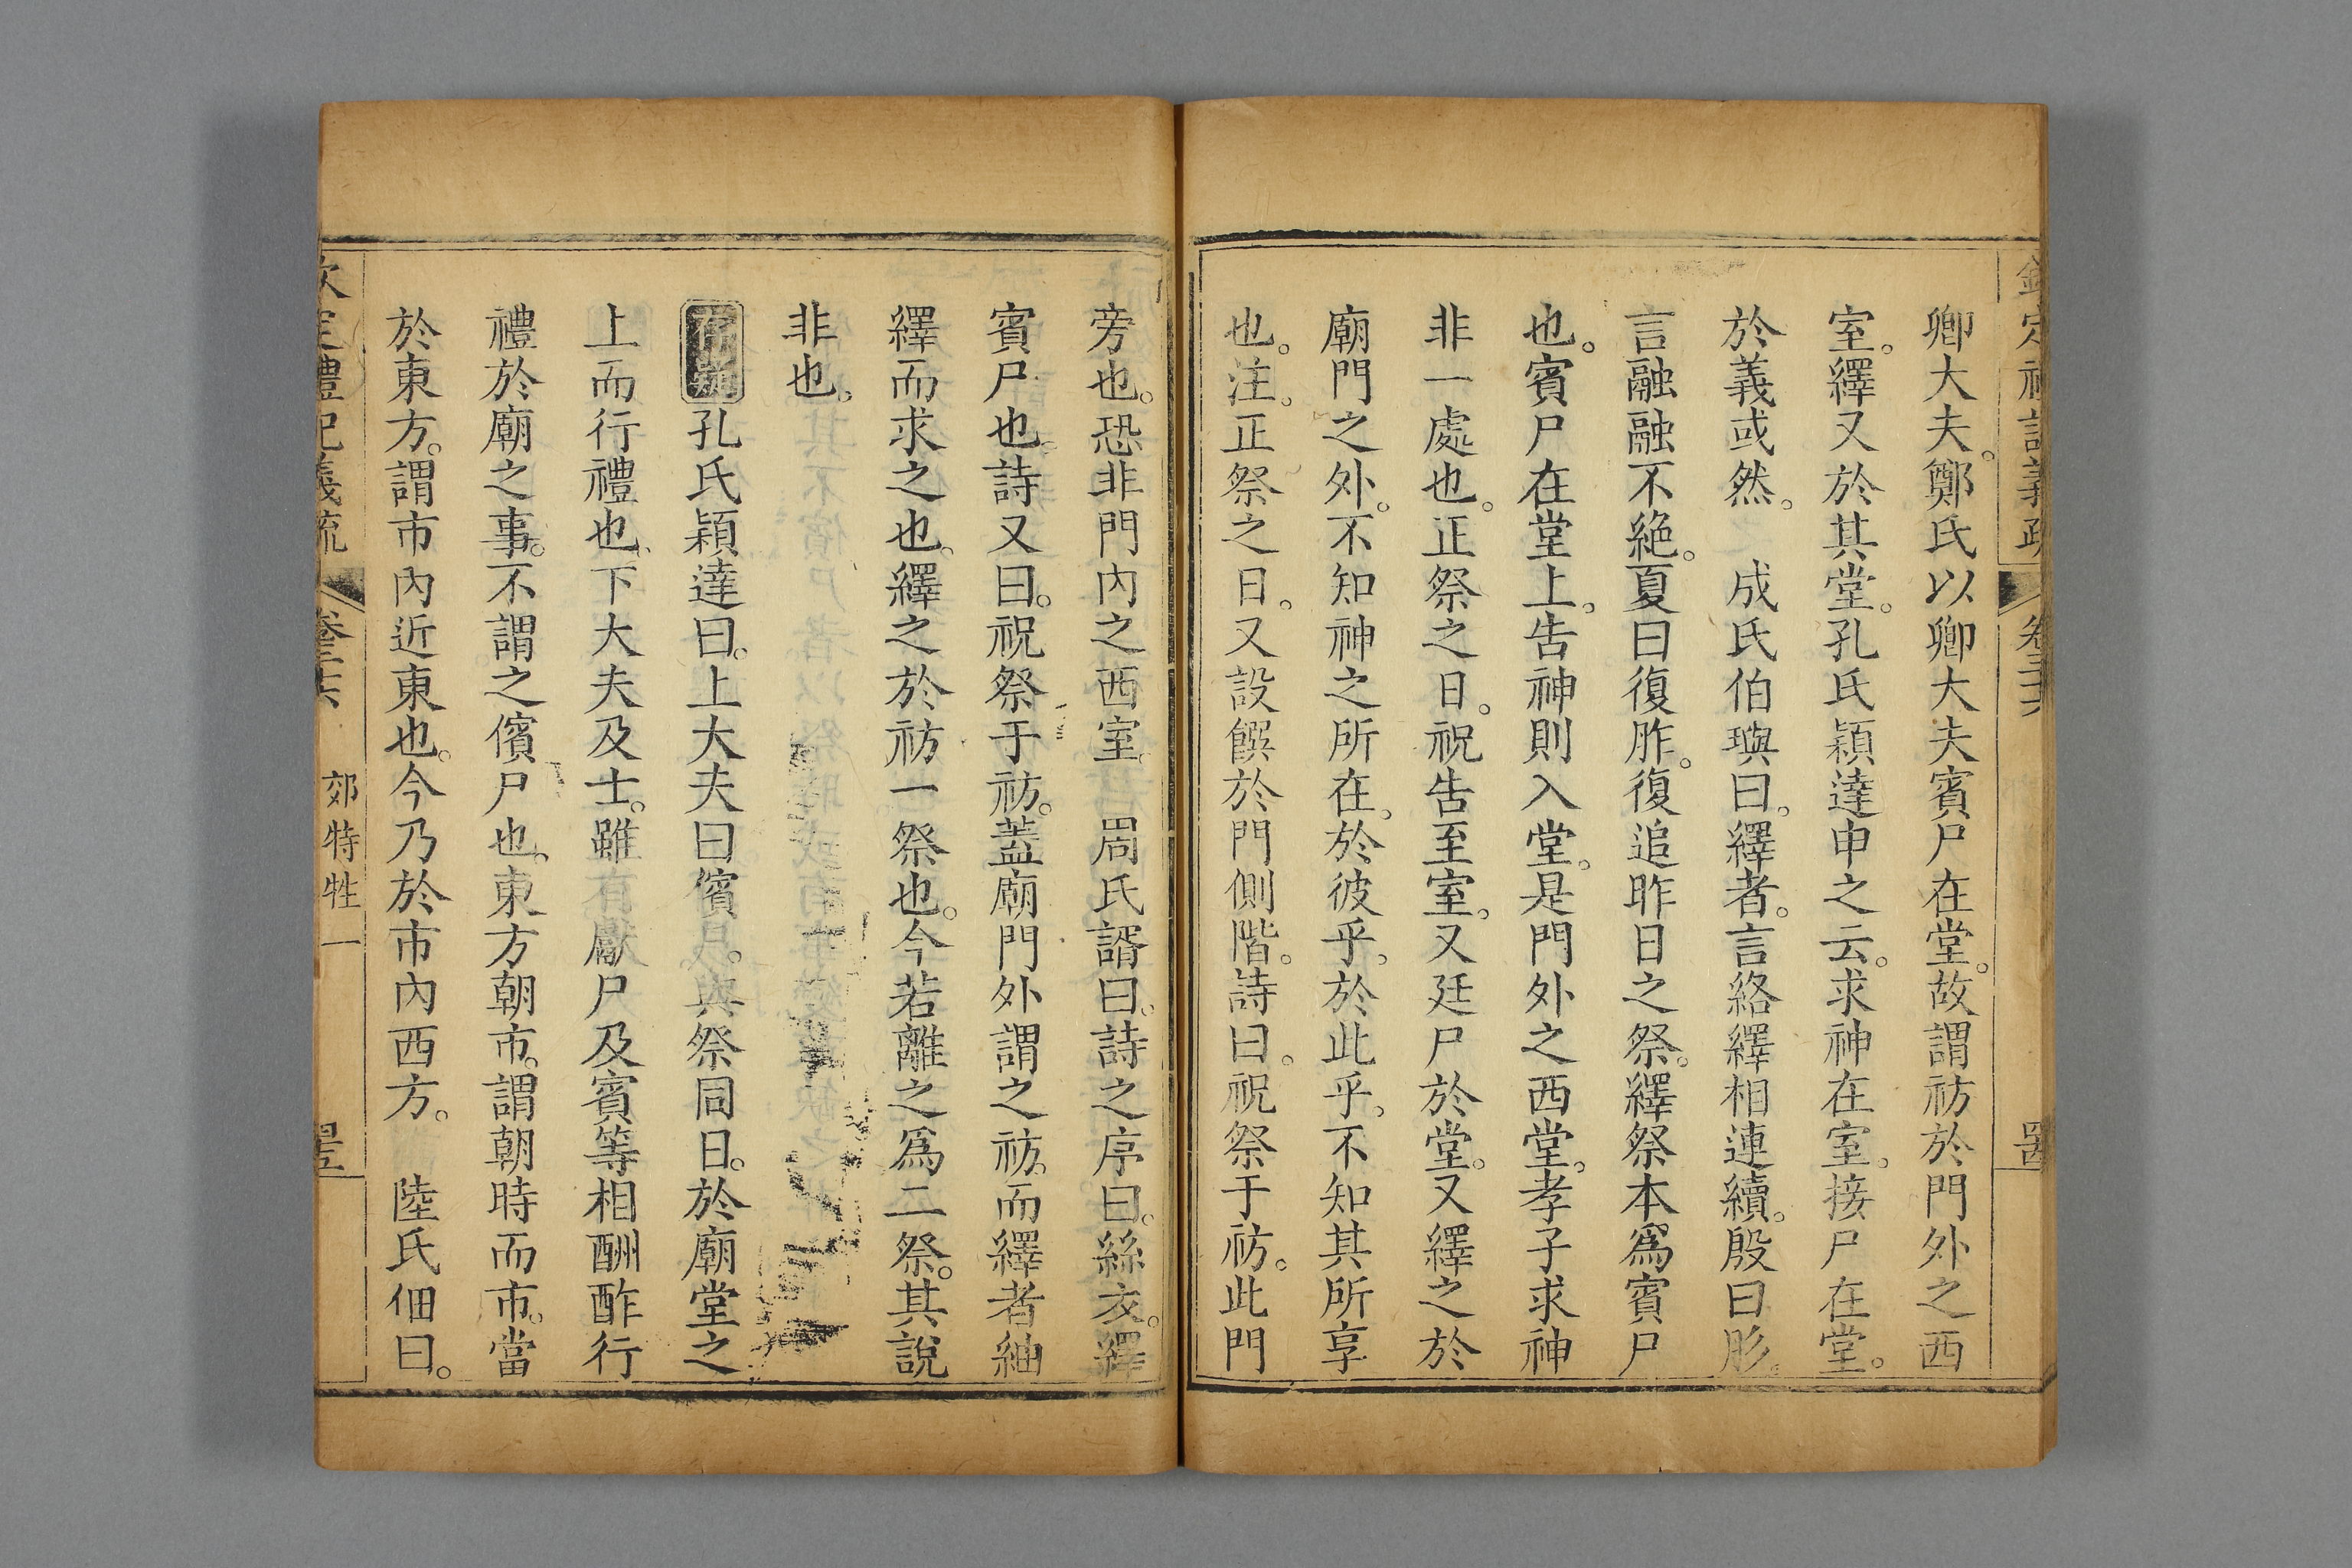 欽定禮記義疏 卷三十六 罡
卿大夫。鄭氏以卿大夫賓尸在堂。故謂祊於門外之西
室。繹又於其堂。孔氏穎達申之云。求神在室。接尸在堂。
於義或然。 成氏伯璵曰。繹者。言絡繹相連續。殷曰肜。
言融融不絶。夏曰復胙。復追昨日之祭。繹祭本爲賓尸
也。賓尸在堂上。告神則入堂。是門外之西堂。孝子求神
非一處也。正祭之日。祝告至室。又廷尸於堂。又繹之於
廟門之外。不知神之所在。於彼乎。於此乎。不知其所享
也。注。正祭之日。又設饌於門側階。詩曰。祝祭于祊。此門
旁也。恐非門内之西室。 周氏諝曰。詩之序曰。絲衣。繹
賓尸也。詩又曰。祝祭于祊。蓋廟門外謂之祊。而繹者紬
繹而求之也。繹之於祊一祭也。今若離之爲二祭。其說
非也。
存疑孔氏穎達曰。上大夫曰儐尸。與祭同日。於廟堂之
上而行禮也。下大夫及士。雖有獻尸及賓等相酬酢行
禮於廟之事。不謂之儐尸也。東方朝市。謂朝時而市。當
於東方。謂市內近東也。今乃於市內西方。 陸氏佃曰。
欽定禮記義疏 卷三十六 郊特牲一